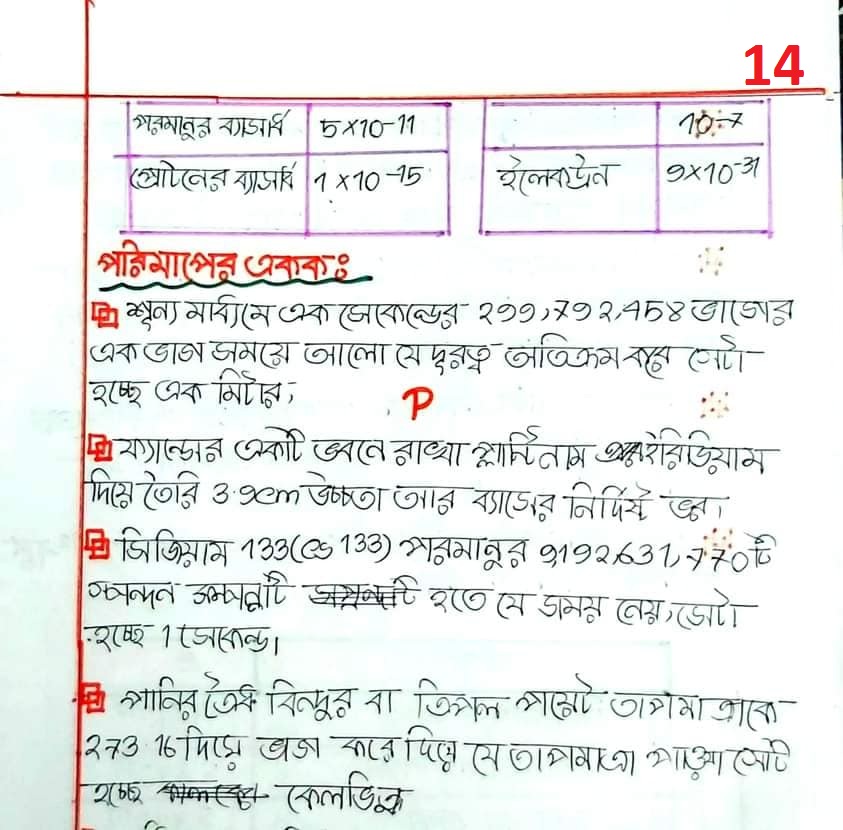 14
পরমানুর ব্যাসার্ধ 5×10-11 10-7
প্রোটনের ব্যাসার্ধ 1×10-15 ইলেকট্রন 9×10-31
পরিমাপের একক:
শূন্য মাধ্যমে এক সেকেন্ডের 299,792,458 ভাগের
এক ভাগ সময়ে আলো যে দূরত্ব অতিক্রম করে সেটা
হচ্ছে এক মিটার,
P
ফ্যান্সের একটি ভবনে রাখা প্লাটিনাম ইরিডিয়াম
দিয়ে তৈরি 3.9cm উচ্চতা আর ব্যাসের নির্দিষ্ট ভর।
সিজিয়াম 133(cs 133) পরমানুর 9,192,631,770টি
স্পন্দন সম্পন্নটি হতে যে সময় নেয়, সেটা
হচ্ছে 1 সেকেন্ড।
পানির ত্রৈধ বিন্দুর বা ত্রিপল পয়েন্ট তাপমাত্রাকে
273.16 দিয়ে ভাগ করে দিলে যে তাপমাত্রা পাওয়া সেটি
হচ্ছে কেলভিন